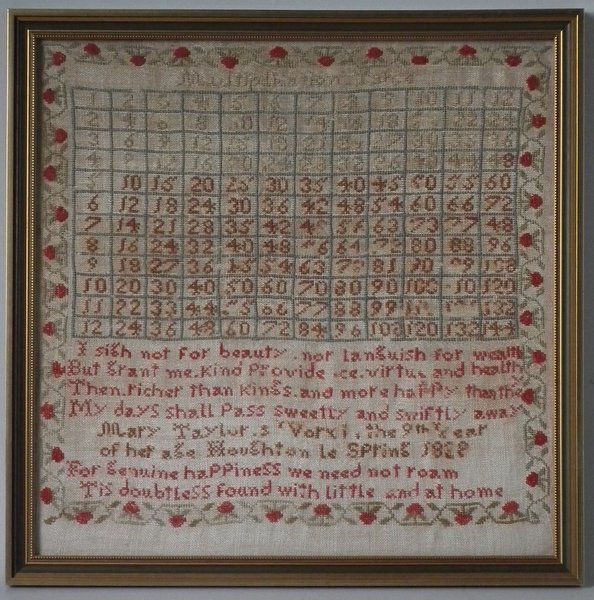 1 2 3 4 5 6 7 8 9 10 11 12
2 4 6 8 10 12
3 6 9 12
4 8 12 16 20 24 40 44 48
5 10 15 20 25 30 35 40 45 50 55 60
6 12 18 24 30 36 42 48 54 60 66 72
7 14 21 28 35 42 56 63 73 77 48
8 16 24 32 40 48 56 64 72 80 88 96
9 18 27 36 45 54 63 81 90 99 108
10 20 30 40 50 60 70 80 90 100 110 120
11 22 33 44 55 66 77 88 99 132
12 24 36 48 60 72 84 96 108 120 132 144
I sigh not for beauty nor languish for wealth
But grant me kind Providence virtue and health
Then richer than kings and more happy than they
My days shall Pass sweetly and swiftly away
Mary Taylor s Work in the 9th Year
of her age Houghton le Spring 1828
For Genuine haPPiness we need not roam
Tis doubtless found with little and at home